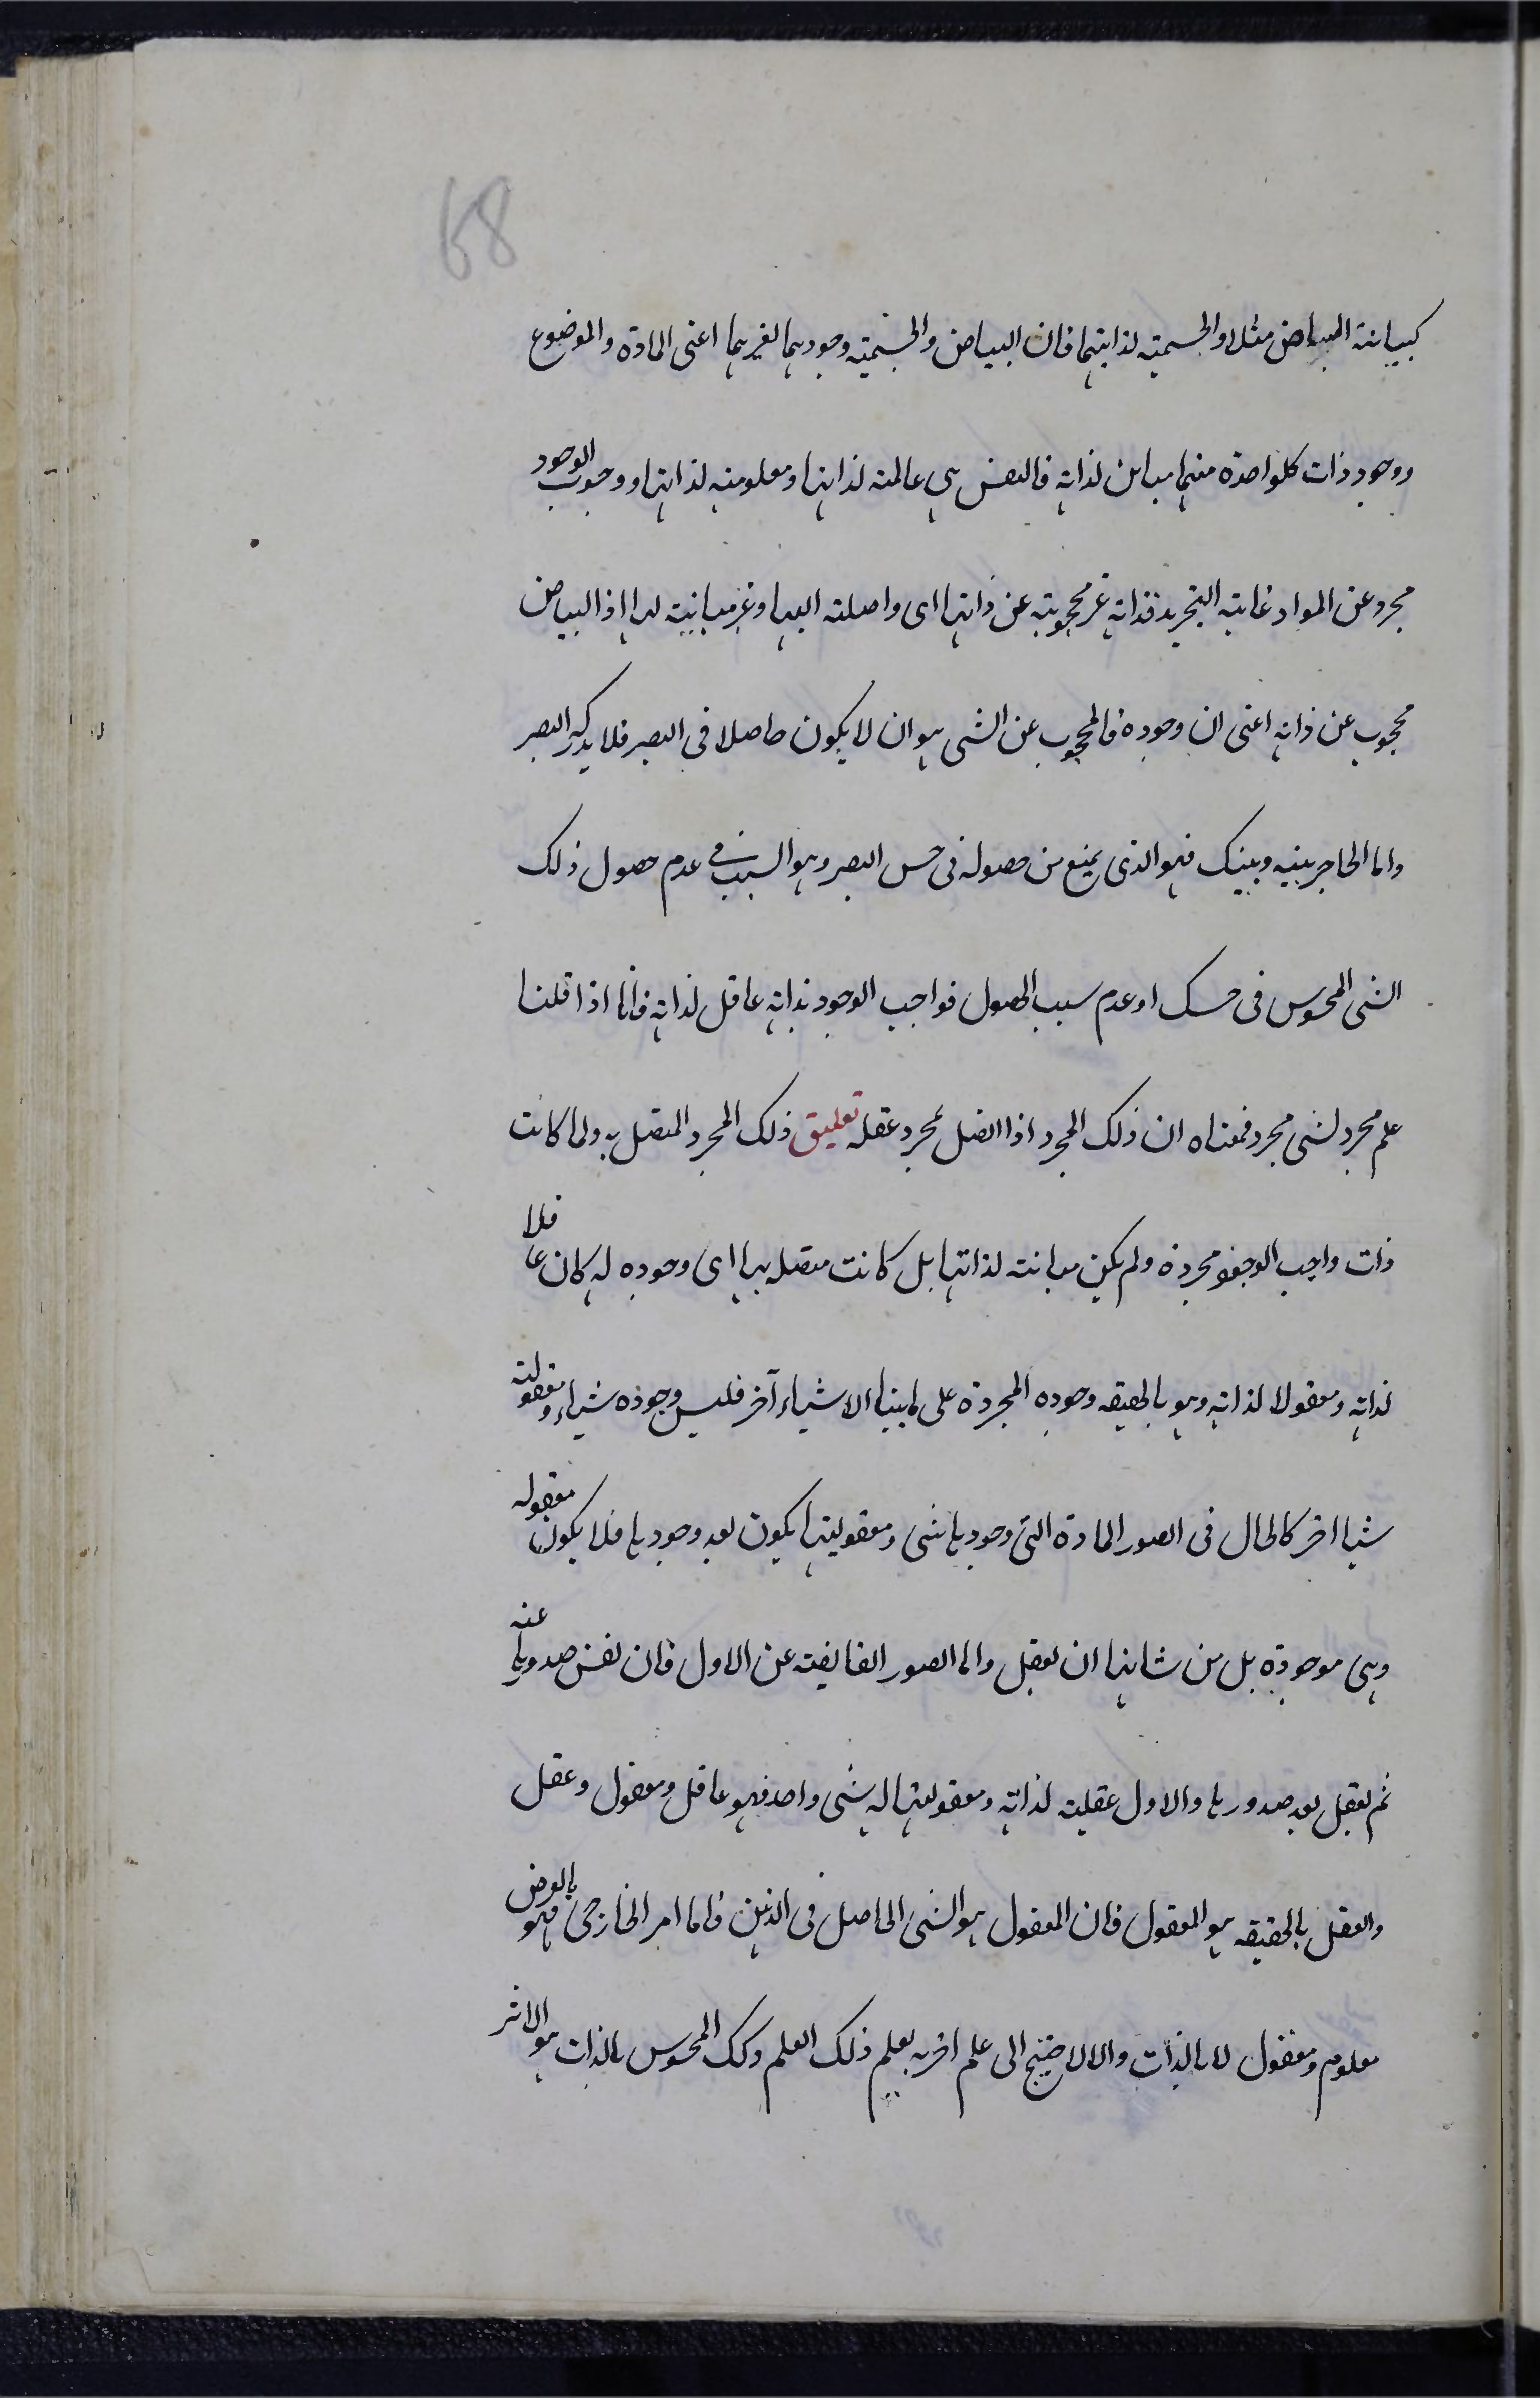 68
كمباينة البياض مثلا والجسمية لذاتيهما فان البياض والجسمية وجودهما لغيرهما اعنى المادة والموضوع
ووجود ذات كلواحدة منهما مباين لذاته فالنفس هى عالمة لذاتها ومعلومة لذاتها ووجوب الوجود
مجرد عن المواد غاية التجريد فذاته غير محجوبة عن ذاتها اى واصلة اليها وغير مباينة لها اذ البياض
محجوب عن ذاته اعنى ان وجوده فالمحجوب عن الشى هو ان لا يكون حاصلا فى البصر فلا يدركه البصر
واما الحاجز بينه وبينك فهو الذى يمنع من حصوله فى حس البصر وهو السبب فى عدم حصول ذلك
الشى المحسوس فى حسك او عدم سبب الحصول فواجب الوجود بذاته عاقل لذاته فانا اذا قلنا
علم مجرد لشى مجرد فمعناه ان ذلك المجرد اذا اتصل بمجرد عقله تعليق ذلك المجرد المتصل به ولما كانت
ذات واجب الوجود مجردة ولم يكن مباينة لذاتها بل كانت متصلة بها اى وجوده له كان عاقلا
لذاته ومعقولا لذاته وهو بالحقيقه وجوده المجردة على ما بينا الاشياء آخر فليس وجوده شياء ومعقوليته
شيا اخر كالحال فى الصور المادة التى وجودها شى ومعقوليتها يكون بعد وجودها فلا يكون معقوله
وهى موجودة بل من شانها ان تعقل واما الصور الفايضة عن الاول فان نفس صدورها عنه
ثم تعقل بعد صدورها والاول عقليته لذاته ومعقوليتها له شى واحد فهو عاقل ومعقول وعقل
والعقل بالحقيقه هو المعقول فان المعقول هو الشى الحاصل فى الذهن فاما امر الخارجى فهو بالعرض
معلوم ومعقول لا بالذات والا لاحتيج الى علم اخر به يعلم ذلك العلم وكك المحسوس بالذات هو الاثر